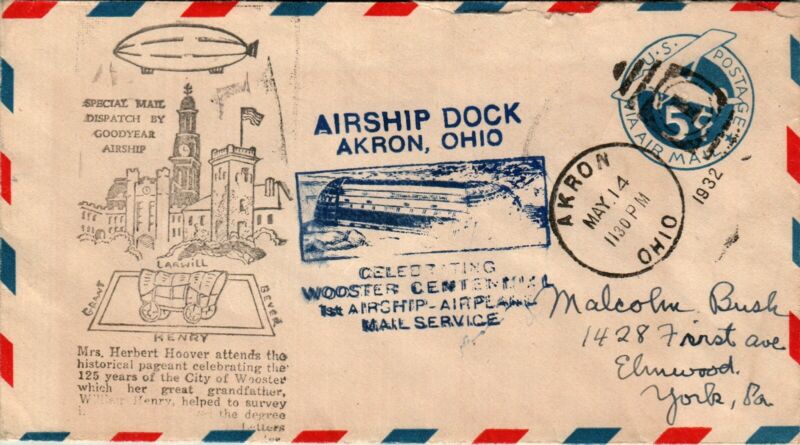 SPECIAL MAIL
DISPATCH BY
GOODYEAR
AIRSHIP
LARWILL
GRANT
BEVER
HENRY
Mrs. Herbert Hoover attends the
historical pageant celebrating the
125 years of the City of Wooster
which her great grandfather,
William Henry, helped to survey
the degree
Letters
AIRSHIP DOCK
AKRON, OHIO
CELEBRATING
WOOSTER CENTENNIAL
1st AIRSHIP-AIRPLANE
MAIL SERVICE
U.S. POSTAGE
VIA AIR MAIL
5¢
AKRON
MAY 14
1130 PM
OHIO
1932
Malcolm Bush
1428 First ave
Elmwood
York, Pa